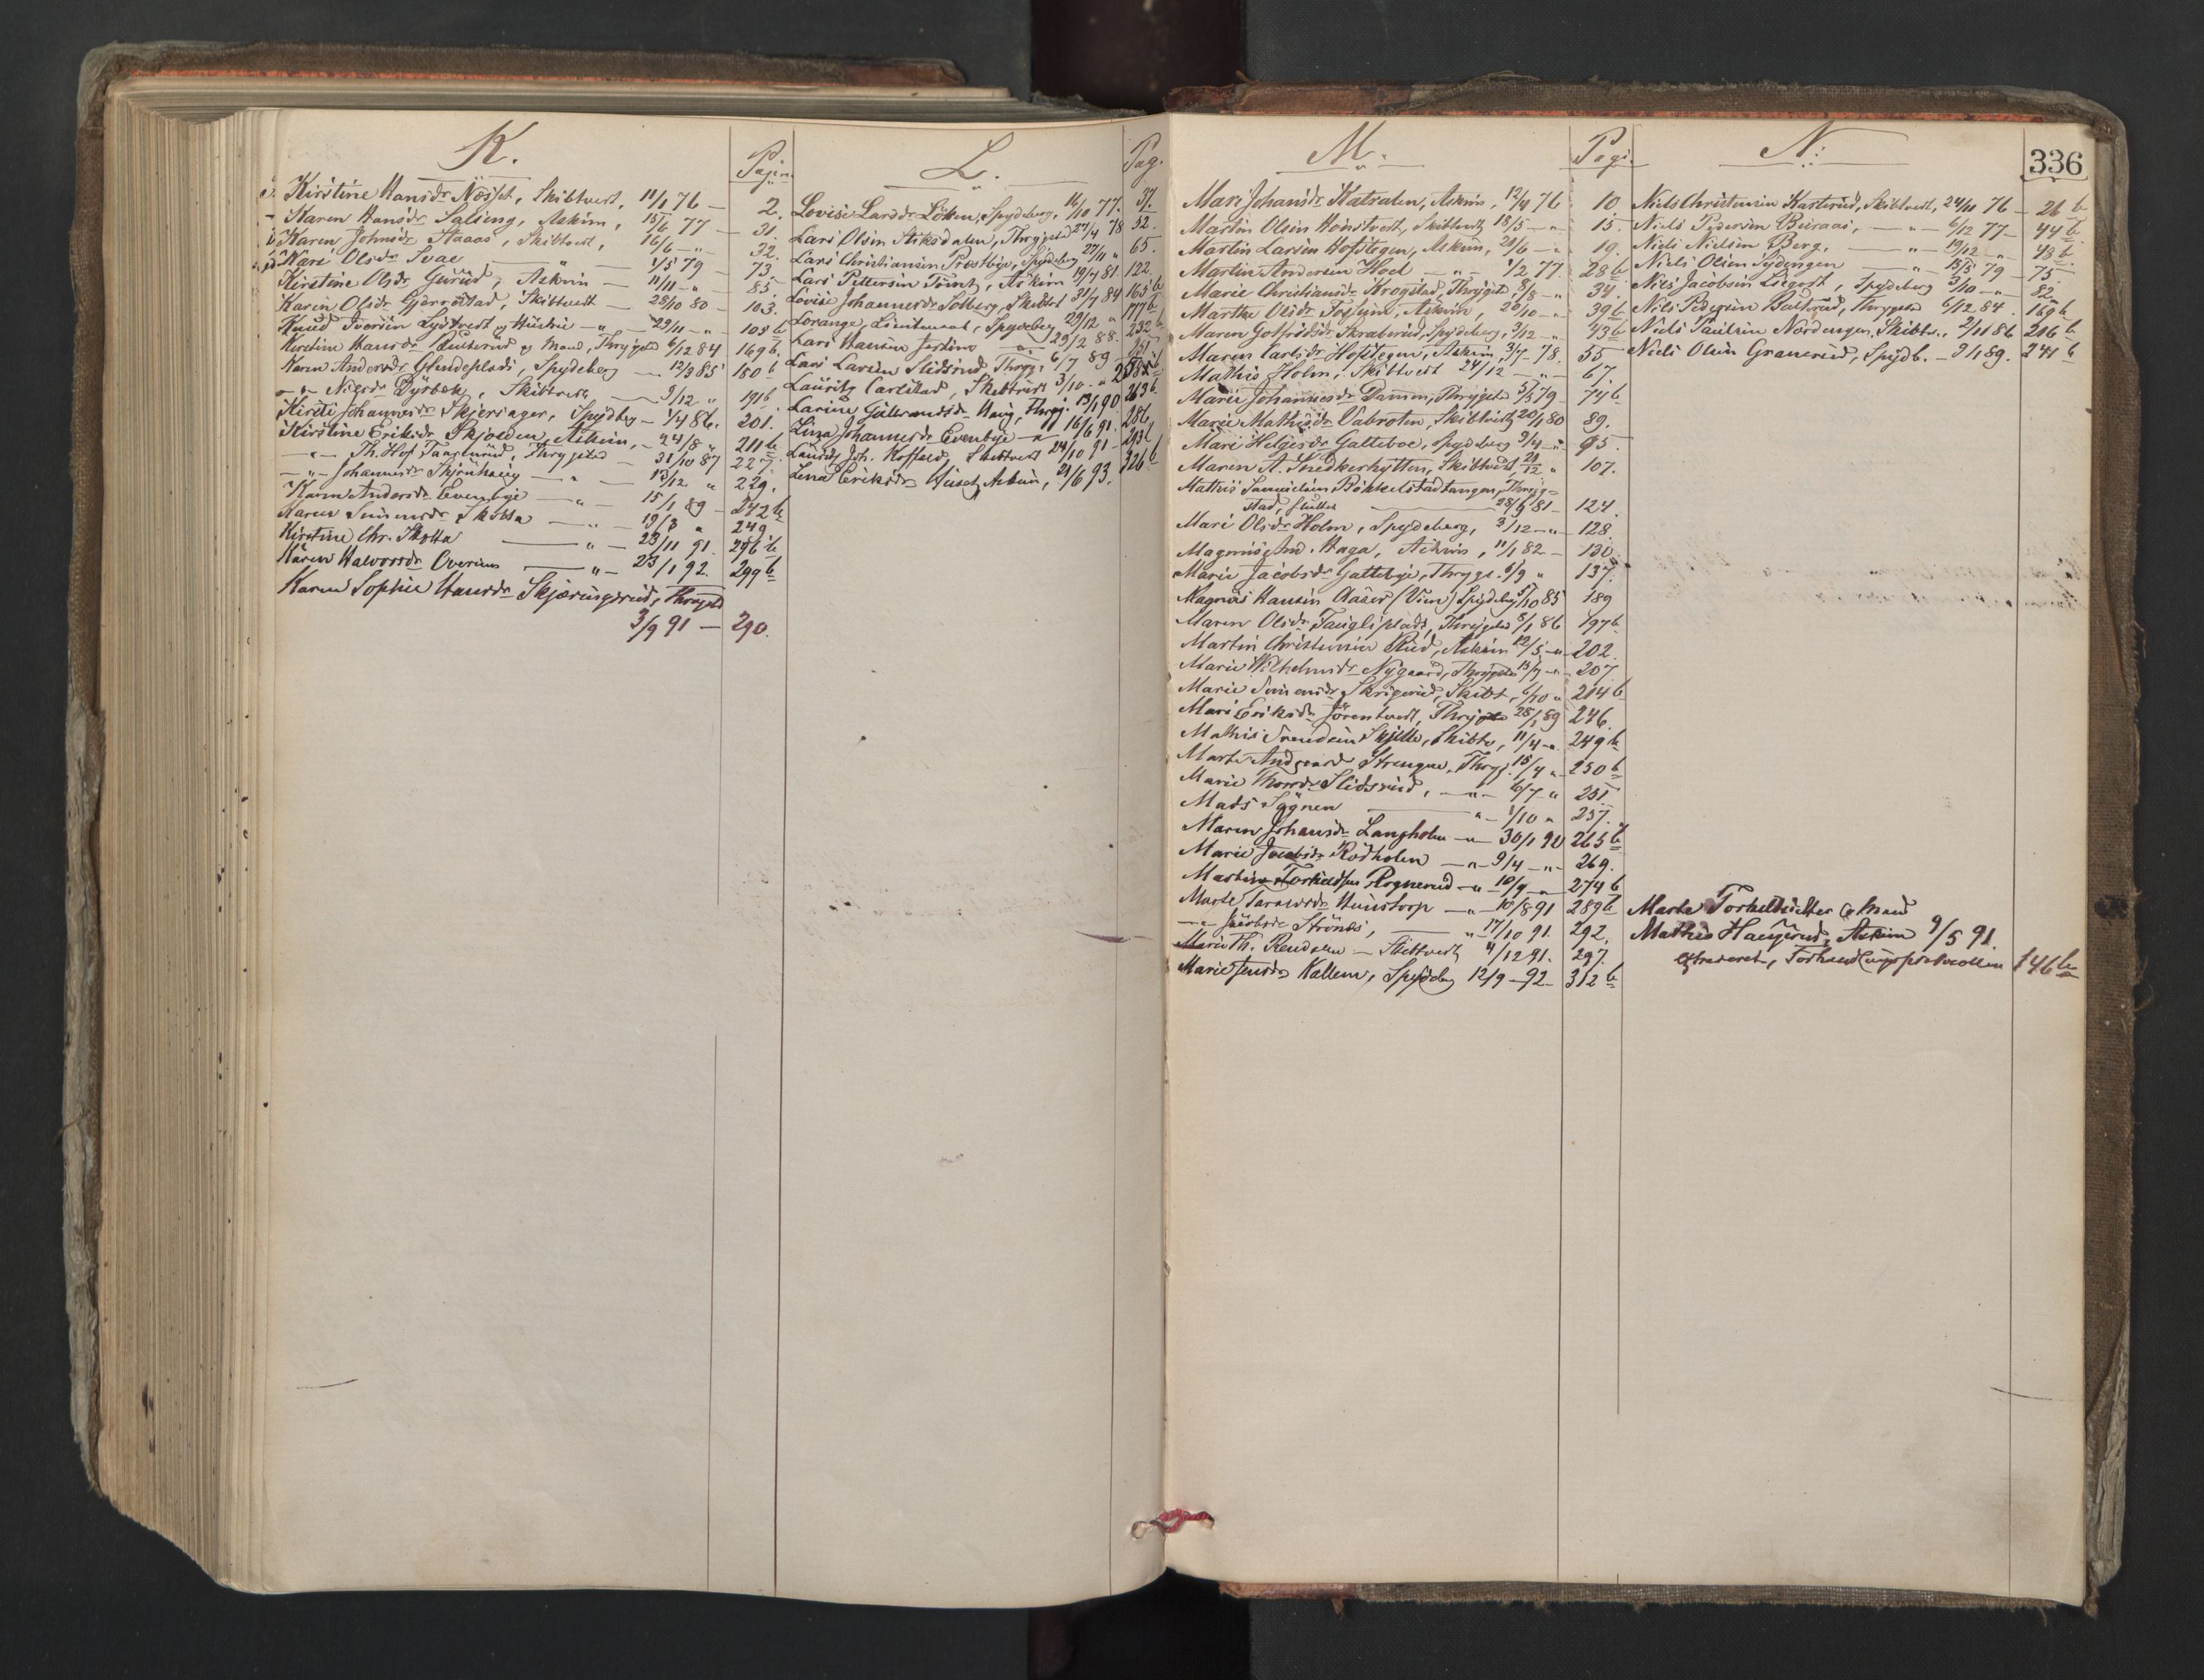 K.
Pagina
Kirstine Hansdr Næsset, Skibtvedt, 11/1 76 — 2.
Karen Hansdr Salseng, Askim, 15/6 77 — 31.
Karen Johnsdr Aaaas, Skibtvedt, 16/6 — " 32.
Kari Olsdr Svae — " — 1/5 79 — 73.
Kirstine Olsdr Gurud, Askim — 11/11 — " 85
Karen Olsdr Gjerrostad, Skibtvedt — 28/10 80 — 103.
Knud Iversen Lystvedt og Hustru — " — 29/11 — " 105 b
Kirstine Hansdr og Mand, Thrygstad 6/12 84 169 b.
Karen Andersdr Glendeplads, Spydeberg — 12/3 85 180 b
— " — Nilsdr Dyrbek, Skibtvedt — 3/12 " 191 b
Kirsti Johannesdr Skjersager, Spydbg — 1/4 86. 201.
Kirstine Eriksdr Skjolden, Askim, — 24/8 " 211 b
— " — Th. Hof Taarnrud, Thrygstad — 31/10 87 227.
— " — Johannesdr Skjønhaug — " — 13/12 " 229.
Karen Andersdr Evenbye — " — 15/1 89 — 242 b
Karen Simensdr Skotta — " — 19/3 " 249
Kirstine Chr. Skotta — " — 23/11 91 296 b
Karen Halvorsdr Overens — " — 23/1 92. 299 b
Karen Sophie Hansdr Skjæringsrud, Thrygstd
3/9 91 — 290.
L.
Pag.
Lovise Larsdr Löken, Spydeberg, 16/10 77. 37.
Lars Olsen Stiksdalen, Thrygstad 27/4 78 52.
Lars Christiansen Præstbye, Spydeberg 27/11 " 65.
Lars Pettersen Tomt, Askim 19/4 81. 122.
Lovise Johannesdr Solberg, Skibtvet 31/1 84 165 b
Lorange, Lieutenant, Spydeberg 29/12 " 177 b
Lars Hansen — " — 29/2 88. 232 b
Lars Larsen Slidsrud, Thrygs. 6/7 89 — 251
Lauritz Carlstad, Skibtvedt 3/10 — "
Larine Gulbrandsdr Haug, Thryg. 13/1 90 263 b
Lina Johannesdr Evenbye — " — 16/6 91. 286
Lauritz Joh. Koffeld, Skibtvedt 24/10 91 — 293 b
Lena Eriksdr Huset, Askim, 21/6 93. 326 b
M.
Pagi.
Mari Johansdr Katralen, Askim, 12/9 76 10
Martin Olsen Honstvedt, Skibtvedt 18/5 — " 15.
Martin Larsen Hofstegen, Askim, 21/6 — " 19.
Martin Andersen Hoel — " — 1/2 77. 28 b
Marie Christiansdr Krogstad, Thrygstd 8/8 — " 34.
Marthe Olsdr Fossum, Askim, 20/10 — " 39 b
Maren Gotfredsdr Skraberud, Spydeberg, 3/12 — " 43 b
Maren Carlsdr Hofstegen, Askim, 3/7 — 78. 55
Mathis Holm, Skibtvedt 24/12 — " — 67
Marie Johannesdr Dammen, Thrygstd 5/5 79 — 74 b
Marie Mathisdr Vabroten, Skibtvedt 20/1 80 89.
Mari Helgesdr Galteboe, Spydeberg 9/4 — " 95.
Maren A. Snedkerhytten, Skibtvedt, 21/12 " 107.
Mathis Samuelsen Bökkelstadtangen, Thryg-
stad, sluttet — 28/9 81 — 124.
Mari Olsdr Holm, Spydeberg, 3/12 — " 128.
Magnus And. Haga, Askim, 11/1 82 — 130.
Marie Jacobsdr Galtebye, Thrygs. 6/9 " 137.
Magnus Hansen Aaser (Viem) Spydeberg 5/10 85 189
Maren Olsdr Fauglisplads, Thrygstad 8/1 86 197 b
Martin Christensen Rud, Askim 12/5 — " 202.
Marie Wilhelmsdr Nygaard, Thrygstad 15/7 — " 207
Marie Simensdr Skrigerud, Skibt. 6/10 " 214 b
Mari Eriksdr Jörentvedt, Thrygst. 28/1 89 246.
Mathis Svendsen Skjelle, Skibtv., 11/4 — " 249 b
Marte Andreasd Strengen, Thryg. 15/4 " 250 b
Marie Thoresdr Slidsrud, — " — 6/7 " 251
Mads Sognen — " — 1/10 " 257.
Maren Johansdr Langholm — " — 30/1 90 265 b
Marie Jacobsdr Rödholen — " — 9/4 — " — 269.
Martin Torkildsen Rognerud — " — 10/9 — " — 274 b
Marte Larsdr Huistorp — " — 10/8 91 289 b
— " — Jacobsdr Strönæs, — " — 17/10 91. 292.
Marie Th. Rendalen — Skibtvedt 4/12 91. 297.
Marie Jensdr Kallem, Spydebg 12/9 — 92 — 312 b
N.
336
Niels Christensen Karterud, Skibtvedt, 24/11 76 — 26 b
Niels Pedersen Buraas, — " — 6/12 77 — 44 b
Niels Nielsen Berg, — " 19/12 — " 48 b
Niels Olsen Sydengen — " — 15/5 79 — 75.
Niels Jacobsen Liegost, Spydeberg 3/10 — " — 82.
Niels Pedersen Buxterud, Thrygstad 6/12 84. 169 b
Niels Paulsen Nordengen, Skibtv., 2/11 86 216 b
Niels Olsen Granerud, Spydb. — 3/1 89. 241 b
Marte Torkeldsdatter og Mand
Mathis Haugerud, Askim 9/5 91.
Extraderet, Forhandlingsprotocollen 146 b